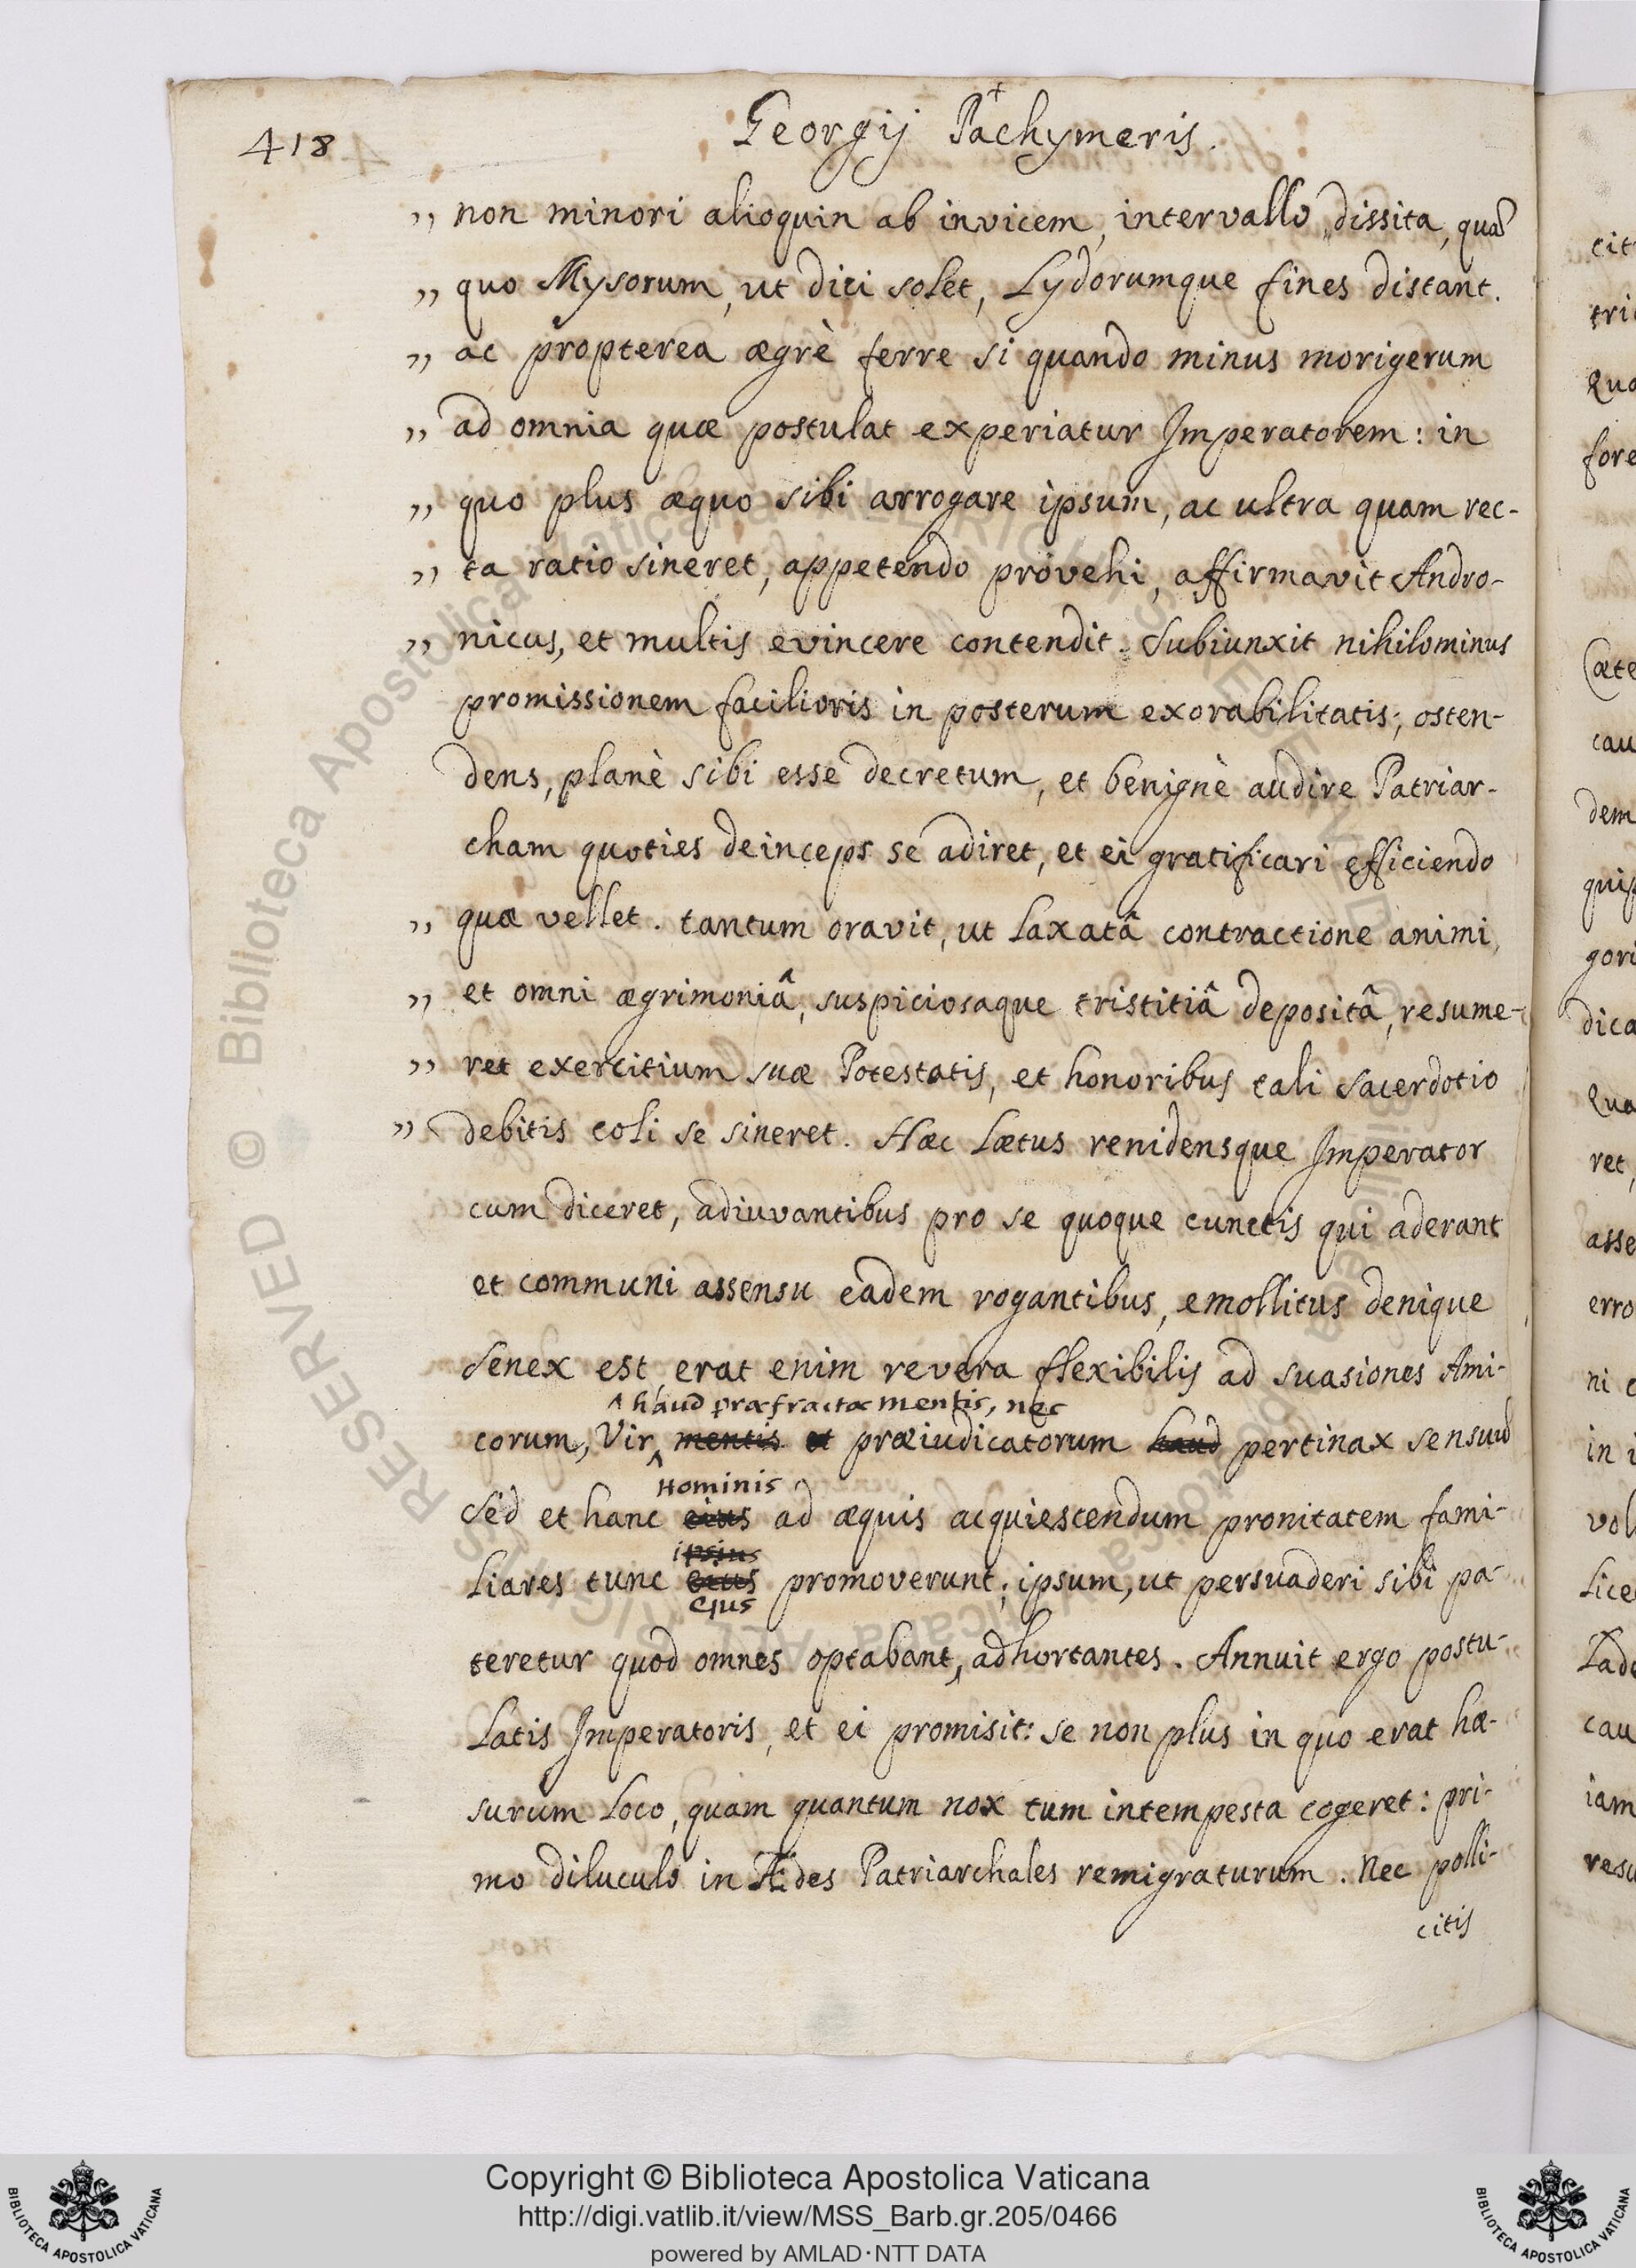 418
Georgij Pachymeris.
„ non minori alioquin ab invicem, intervallo dissita, quā
„ quo Mysorum, ut dici solet, Lydorumque fines distant.
„ ac propterea ægrè ferre si quando minus morigerum
„ ad omnia quæ postulat experiatur Imperatorem: in
„ quo plus æquo sibi arrogare ipsum, ac ultra quam rec-
„ ta ratio sineret, appetendo provehi, affirmavit Andro-
„ nicus, et multis evincere contendit. Subiunxit nihilominus
promissionem facilioris in posterum exorabilitatis; osten-
dens, planè sibi esse decretum, et benignè audire Patriar-
cham quoties deinceps se adiret, et ei gratificari efficiendo
„ quæ vellet. tantum oravit, ut laxatâ contractione animi,
„ et omni ægrimoniâ, suspiciosaque tristitiâ depositâ, resume-
„ ret exercitium suæ Potestatis, et honoribus tali sacerdotio
„ debitis coli se sineret. Hæc Lætus renidensque Imperator
cum diceret, adiuvantibus pro se quoque cunctis qui aderant
et communi assensu eadem rogantibus, emollitus denique
Senex est, erat enim revera flexibilis ad suasiones Ami-
^ haud præfractæ mentis, nec
corum, Vir, mentis et præiudicatorum haud pertinax sensuū
Hominis
Sed et hanc eius ad æquis acquiescendum pronitatem fami-
ipsius
liares tunc eius promoverunt; ipsum, ut persuaderi sibi pa-
ejus
teretur quod omnes optabant, adhortantes. Annuit ergo postu-
Latis Imperatoris, et ei promisit: se non plus in quo erat hæ-
surum Loco, quam quantum nox tum intempesta cogeret: pri-
mo diluculo in Ædes Patriarchales remigraturum. Nec polli-
citis
cit
tri
Qua
fore
Cæte
cau
dem
quip
gori
dica
Qua
ret,
asse
erro
ni
in i
vol
lice
cau
iam
resu
RESERVED © Biblioteca Apostolica Vaticana ALL RIGHTS RESERVED © Biblioteca Apostolica Vaticana ALL RIGHTS
Copyright © Biblioteca Apostolica Vaticana
http://digi.vatlib.it/view/MSS_Barb.gr.205/0466
powered by AMLAD·NTT DATA
BIBLIOTECA APOSTOLICA VATICANA
BIBLIOTECA APOSTOLICA VATICANA